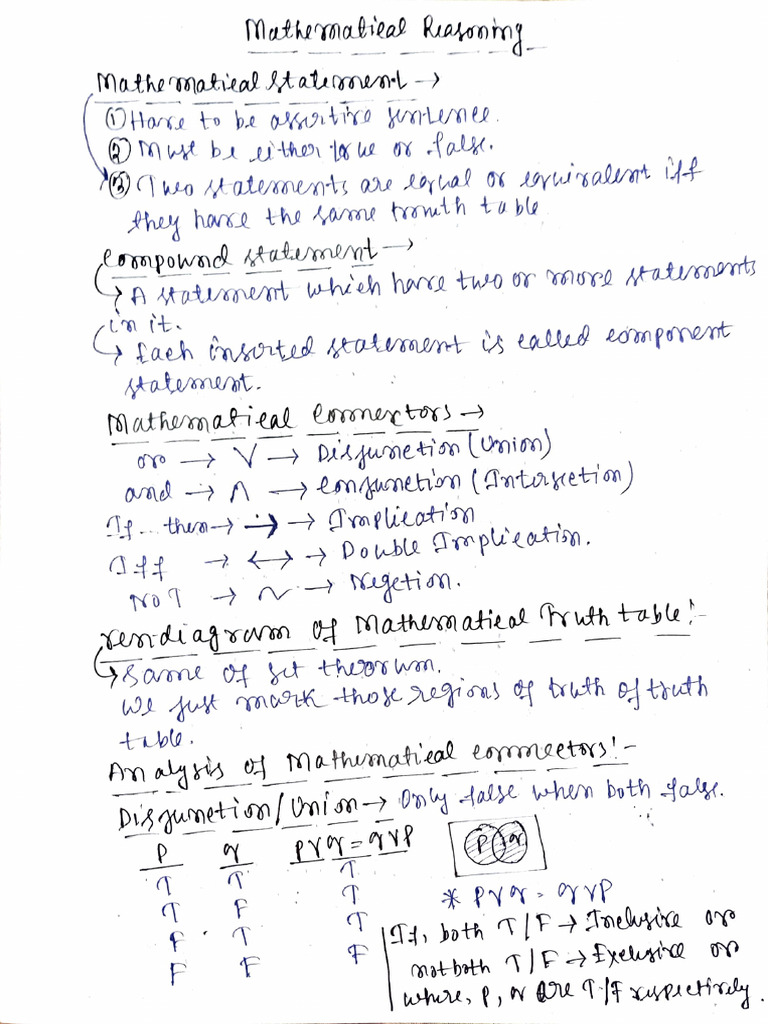 Mathematical Reasoning
Mathematical statement →
① Have to be assertive sentence.
② Must be either true or false.
③ Two statements are equal or equivalent iff
they have the same truth table
Compound statement →
↳ A statement which have two or more statements
in it.
↳ Each inserted statement is called component
statement.
Mathematical Connectors →
or → ∨ → Disjunction (Union)
and → ∧ → Conjunction (Intersection)
If... then → → → Implication
Iff → ↔ → Double Implication.
NOT → ~ → Negetion.
Vendiagram of Mathematical Truth table:-
↳ Same of set theorum.
We just mark those regions of truth of truth
table.
Analysis of Mathematical connectors:-
Disjunction/Union → Only false when both false.
P q P∨q = q∨P
T T T
T F T
F T T
F F F
P q
* P∨q = q∨P
If, both T/F → Inclusive or
not both T/F → Exclusive or
where, P, q are T/F respectively.